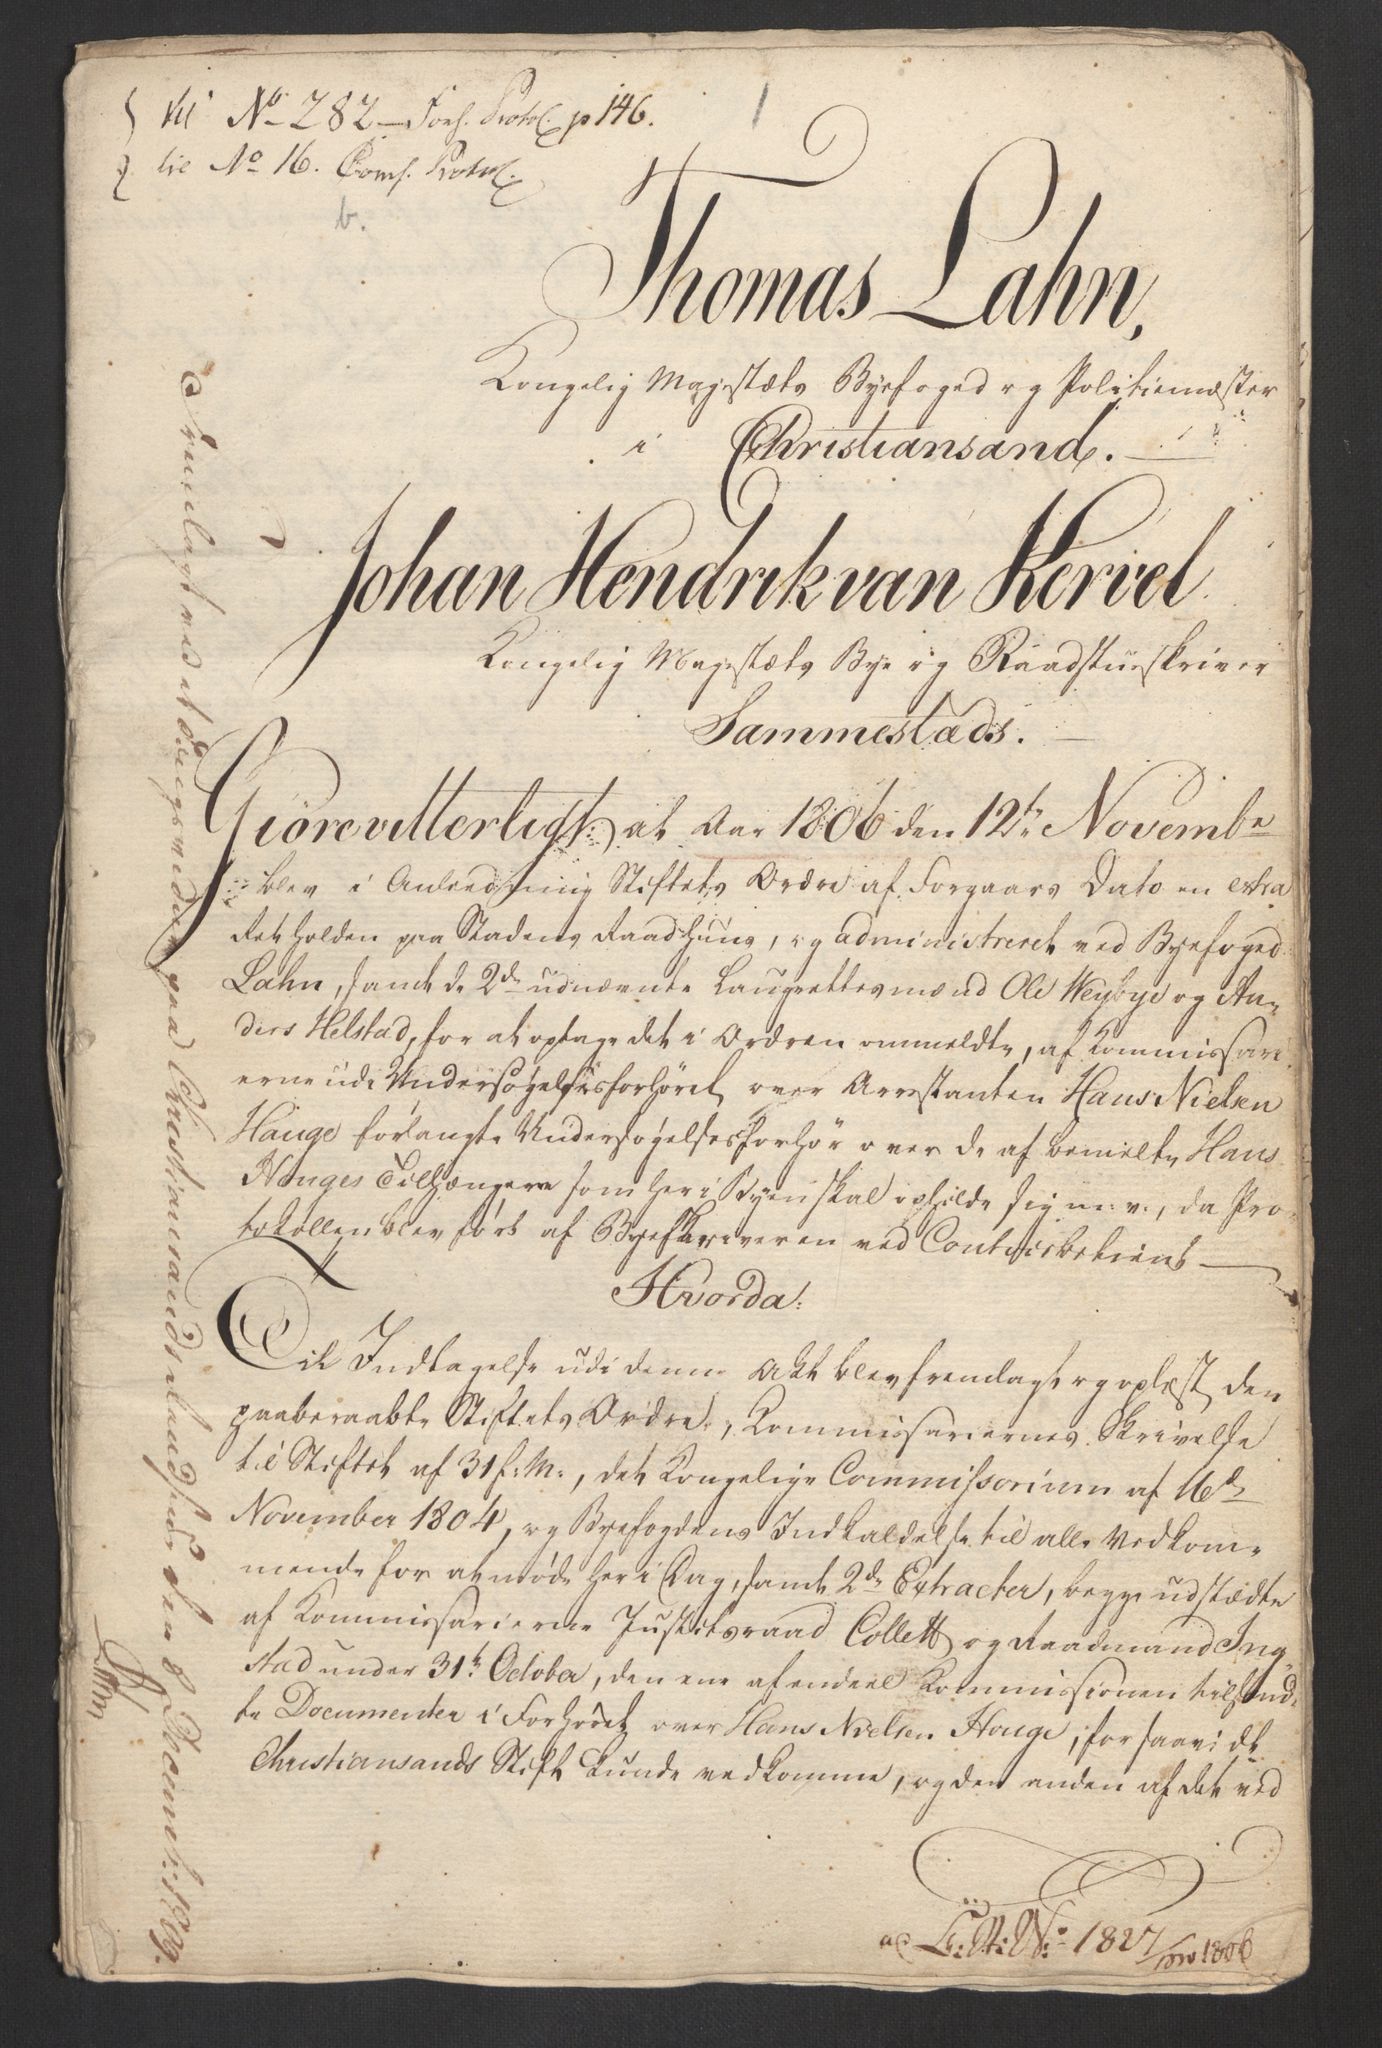 til No 282 Forh. Protoc. p 146.
til No 16. Coms. Protoc.
b.
1
Thomas Lahn,
Kongelig Majestæts Byefoged og Politiemæster
i Christiansand.
Johan Hendrik van Kervel
Kongelig Majestæts Bye og Raadstueskriver
Sammestæds.
Giøre vitterligt: at Aar 1806 den 12te Novembr
blev i Anledning Stiftets Ordre af Forgaars Dato en extra
Ret holden paa Stadens Raadhuus, og administreret ved Byefoged
Lahn, samt de 2de udnævnte Laugrettesmænd Ole Weybye og An-
ders Helstad, for at optage det i Ordren ommeldte, af Kommissari-
erne udi Undersøgelsesforhøret over Arrestanten Hans Nielsen
Hauge forlangte Undersøgelsesforhør over de af bemelte Hans
Hauges Tilhængere som her i Byen skal opholde sig m: v:, da Pro-
tokollen blev ført af Byeskriveren ved Contoirbetient
Hvorda:
Til Indtagelse udi denne Akt blev fremlagt og oplæst den
paaberaabte Stiftets Ordre, Kommissariernes Skrivelse
til Stiftet af 31 f: M:, det Kongelige Commissorium af 16de
November 1804, og Byefogdens Indkaldelse til alle Vedkom-
mende for at møde her i Dag, samt 2de Extracter, begge udstædte
af Kommissarierne Justitsraad Collett og Raadmand Ing-
stad under 31te October, den ene af endeel Kommissionen tilsend-
te Documenter i Forhøret over Hans Nielsen Houge, forsaavidt
Christiansands Stift kunde vedkomme, og den anden af det ved
No 1827/1806
Fremlagt ved et Tilægs paa Christiansands den 8 1809.